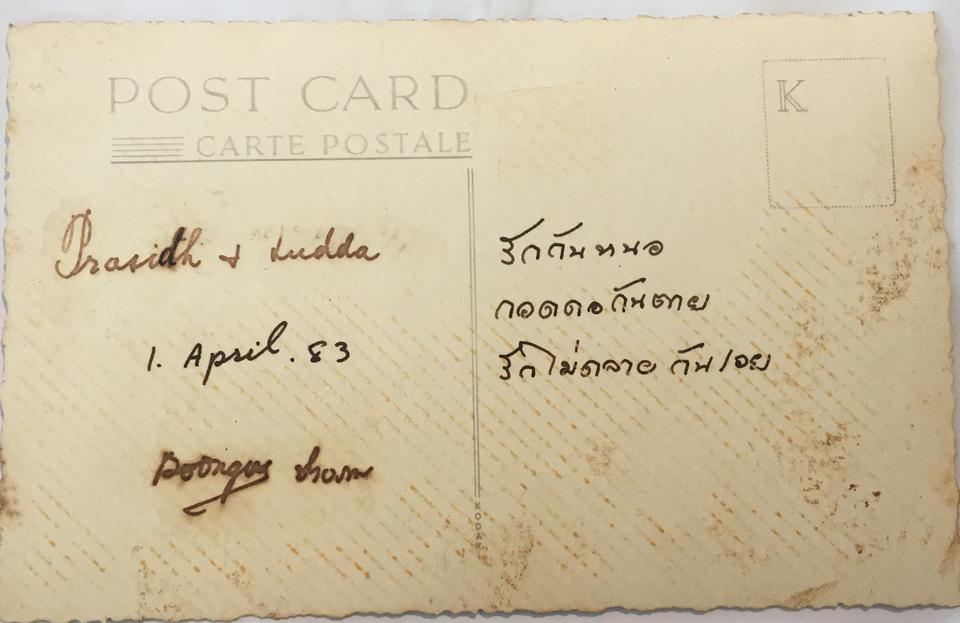 POST CARD
CARTE POSTALE
K
Prasidh + Ludda
1. April. 83
รักกันหนอ
กอดคอกันตาย
รักไม่คลาย กันเอย
KODAK